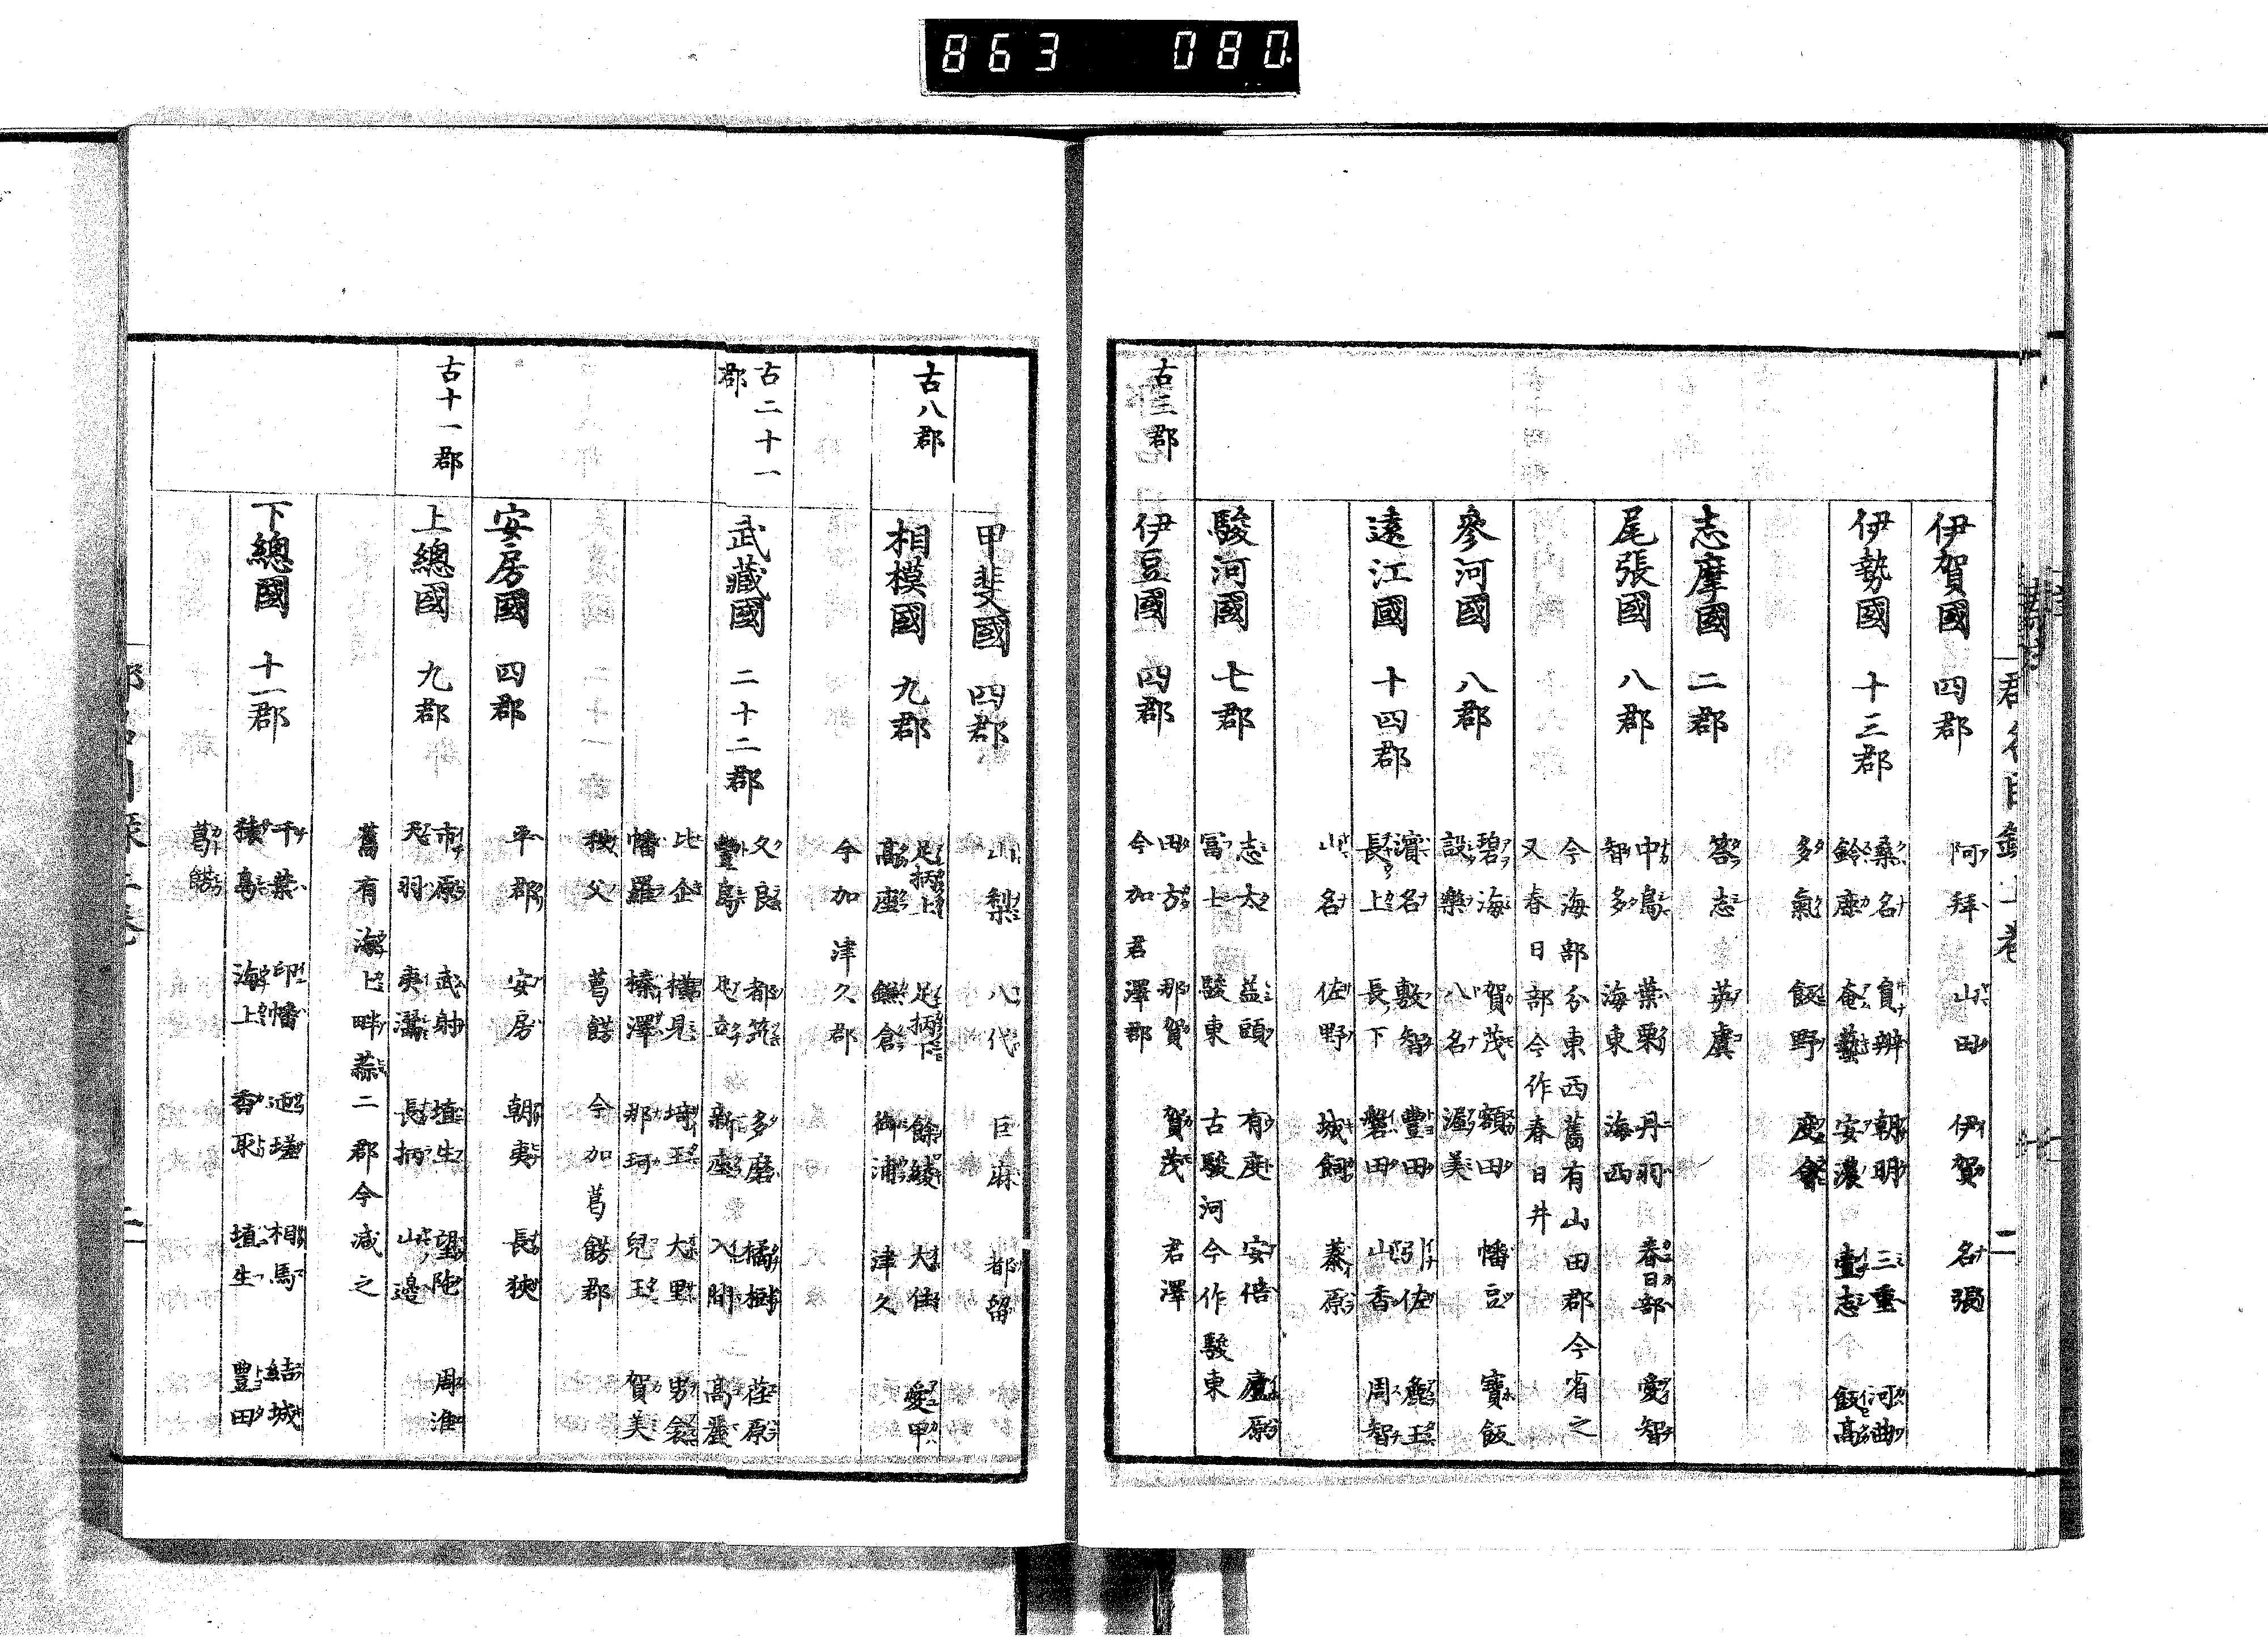 863 080
伊賀國 四郡 阿拜 山田 伊賀 名張
伊勢國 十三郡 桑名 員辨 朝明 三重 河曲
鈴鹿 奄藝 安濃 壹志 飯高
多氣 飯野 度會
志摩國 二郡 答志 英虞
尾張國 八郡 中島 葉栗 丹羽 春日部 愛智
智多 海東 海西
今海部分東西舊有山田郡今省之
又春日部今作春日井
參河國 八郡 碧海 賀茂 額田 幡豆 寶飯
設樂 八名 渥美
遠江國 十四郡 濱名 敷智 豐田 引佐 麁玉
長上 長下 磐田 山香 周智
山名 佐野 城飼 蓁原
駿河國 七郡 志太 益頭 有度 安倍 廬原
冨士 駿東 古駿河今作駿東
古三郡
伊豆國 四郡 田方 那賀 賀茂 君澤
今加君澤郡
甲斐國 四郡 山梨 八代 巨麻 都留
古八郡
相模國 九郡 足柄上 足柄下 餘綾 大住 愛甲
高座 鎌倉 御浦 津久
今加津久郡
古二十一郡
武藏國 二十二郡 久良 都筑 多磨 橘樹 荏原
豐島 足立 新座 入間 高麗
比企 橫見 埼玉 大里 男衾
幡羅 榛澤 那珂 兒玉 賀美
秩父 葛餝 今加葛餝郡
安房國 四郡 平郡 安房 朝夷 長狹
古十一郡
上總國 九郡 市原 武射 埴生 望陀 周淮
天羽 夷灊 長柄 山邊
舊有海上畔蒜二郡今減之
下總國 十一郡 千葉 印幡 迊瑳 相馬 結城
猨島 海上 香取 埴生 豐田
葛餝